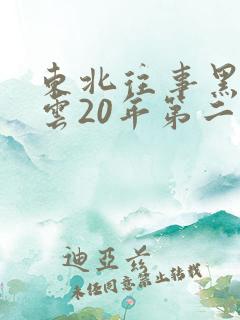 東北往事黑
雲20年第二
迪亞爺
未經同意禁止转载